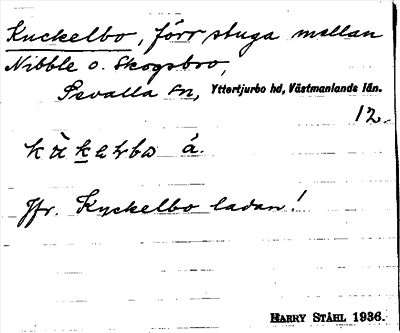 Kuckelbo, förr stuga mellan
Nibble o. Skogsbro,
Sevalla sn, Yttertjurbo hd, Västmanlands län.
12.
kùkelbo å.
Jfr. Kyckelbo ladan!
HARRY STÅHL 1936.